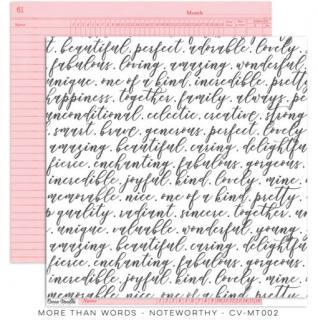 61
Month
Name
t. beautiful. perfect. adorable. lovely.
fabulous. loving. amazing. wonderful.
unique. one of a kind. incredible. pretty
happiness. together. family. always. pe
unconditional. eclectic. creative. strong
smart. brave. generous. perfect. lovely
amazing. beautiful. caring. delightful
fierce. enchanting. fabulous. gorgeous.
incredible. joyful. kind. lovely. mine.
memorable. nice. one of a kind. pretty
quality. radiant. sincere. together. un
unique. valuable. wonderful. young.
amazing. beautiful. caring. delightful
fierce. enchanting. fabulous. gorgeous
incredible. joyful. kind. lovely. mine.
Cocoa Vanilla
Name
MORE THAN WORDS - NOTEWORTHY - CV-MT002